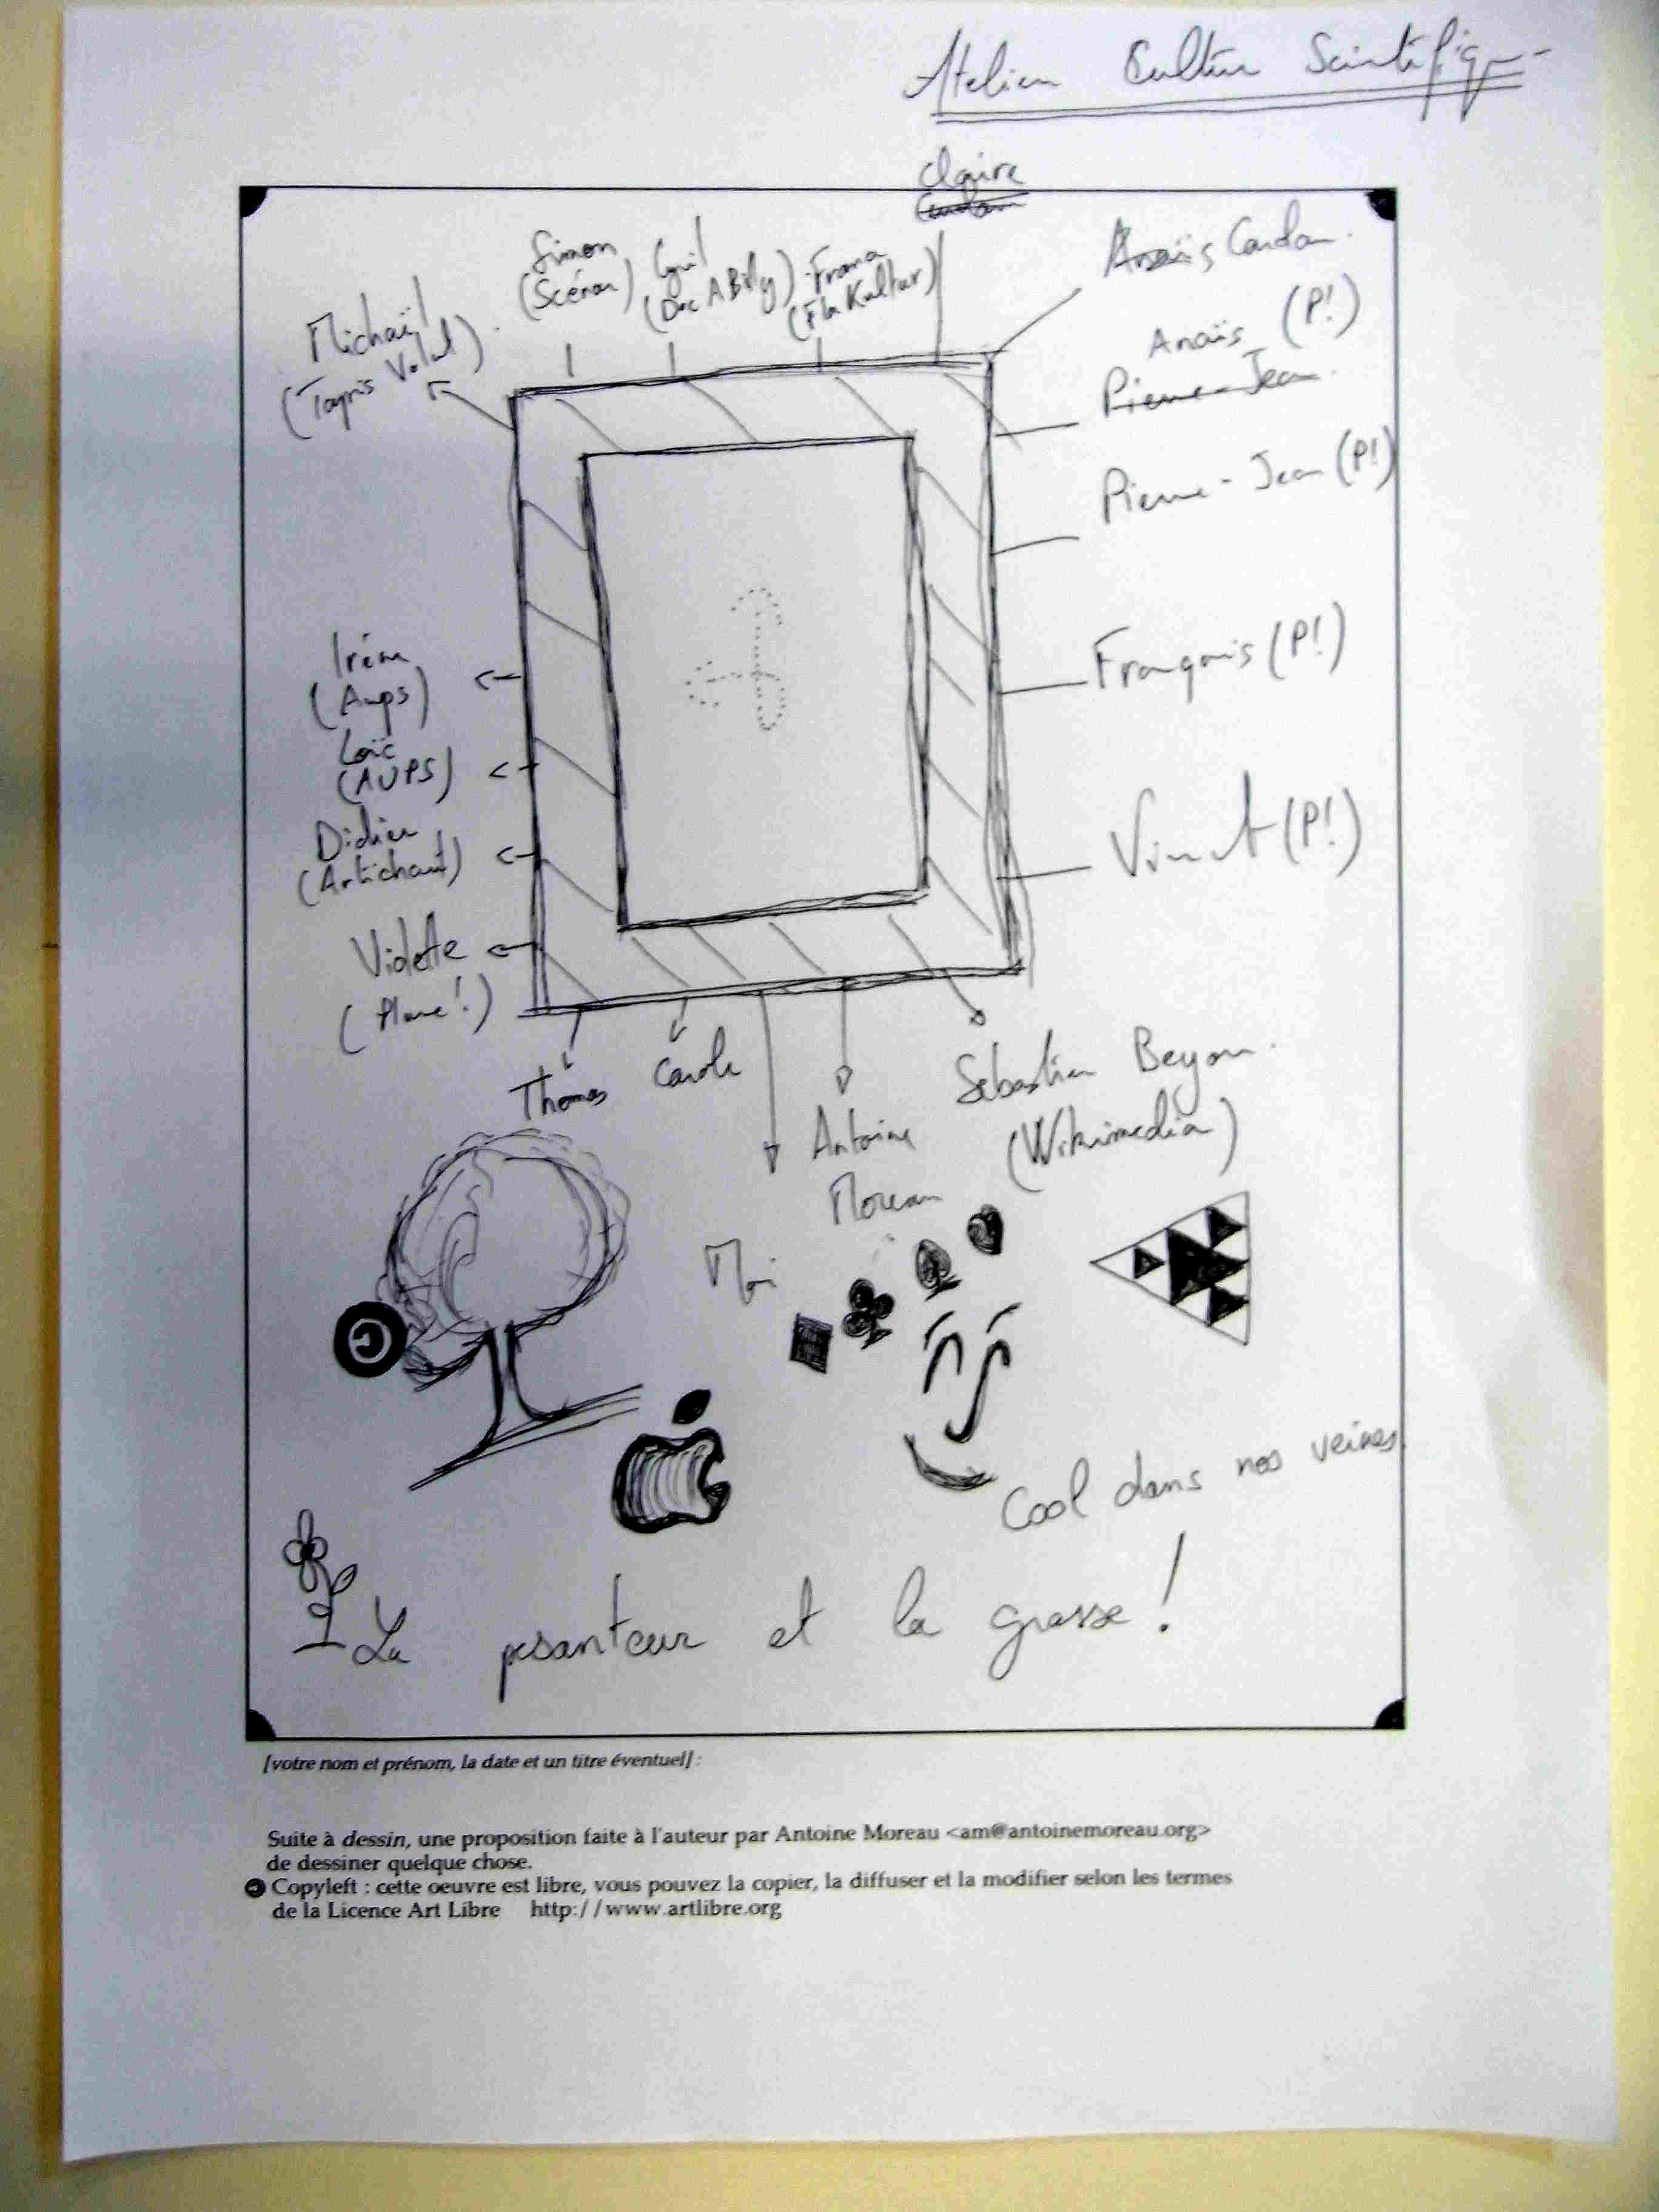 Atelier Culture Scientifique
Claire
Simon
(Scénar)
(Doc ABily)
(Fla Kultur)
Michaël
(Tapis Volant)
Anaïs Candan.
Anaïs (P!)
Pierre-Jean.
Pierre-Jean (P!)
François (P!)
Vincent (P!)
Irène
(Aups)
Loïc
(AUPS)
Didier
(Artichaut)
Violette
(Plane!)
Thomas
Carole
Moi
Antoine
Moreau
Sébastien Beyou
(Wikimedia)
Cool dans nos veines
La pesanteur et la grasse !
[votre nom et prénom, la date et un titre éventuel] :
Suite à dessin, une proposition faite à l'auteur par Antoine Moreau <am@antoinemoreau.org>
de dessiner quelque chose.
Copyleft : cette oeuvre est libre, vous pouvez la copier, la diffuser et la modifier selon les termes
de la Licence Art Libre http://www.artlibre.org